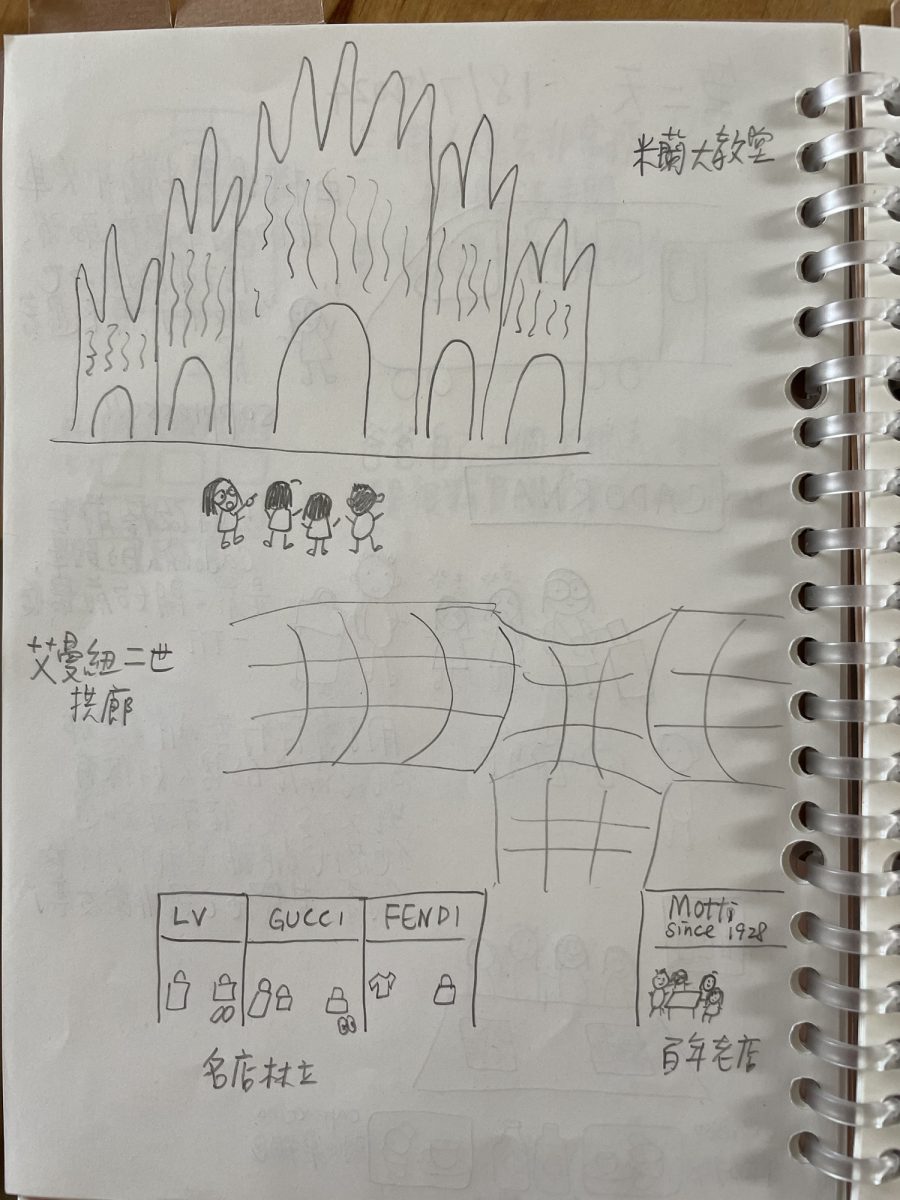 米蘭大教堂
艾曼紐二世
拱廊
LV
GUCCI
FENDI
Motti
since 1928
名店林立
百年老店